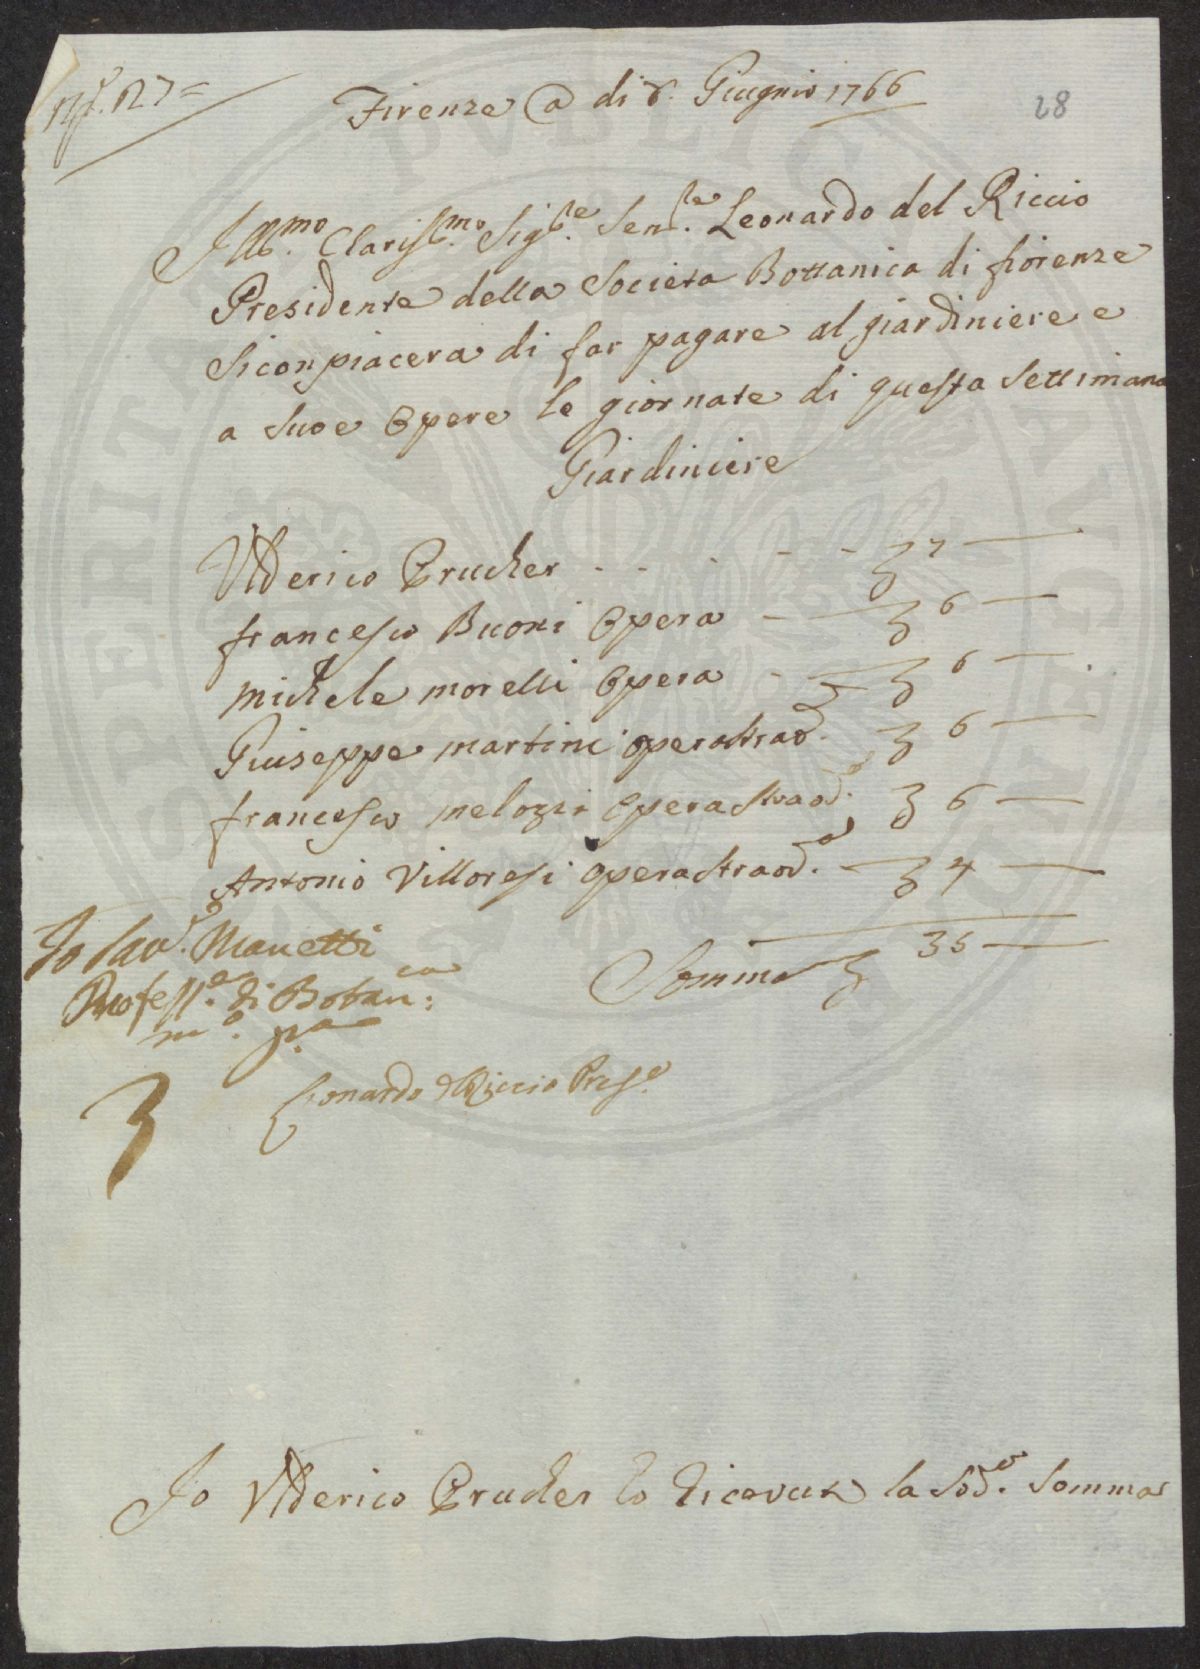 N.º 27=
28
Firenze a di 8. Giugnio 1766
Ill.mo Clariss.mo Sig.re Sen.re Leonardo del Riccio
Presidente della Societa Bottanica di fiorenze
Siconpiacera di far pagare al giardiniere e
a Suoe Opere le giornate di questa Settimana
Giardiniere
Ulderico Prucher . . . . - - 7 —
francesco Buoni Opera — 6 —
michele morelli Opera - 6 —
Giuseppe martini operastraod. 6 —
francesco melozzi Operastraod.a 6 —
Antonio Villoresi operastraod.a — 4 —
Somma 35 —
Io Sav.r Manetti
Profess.e di Botan.ca:
m.o p.a
Leonardo del Riccio Pres.e
Io Ulderico Prucher ho Ricevuto la Sod.a Somma